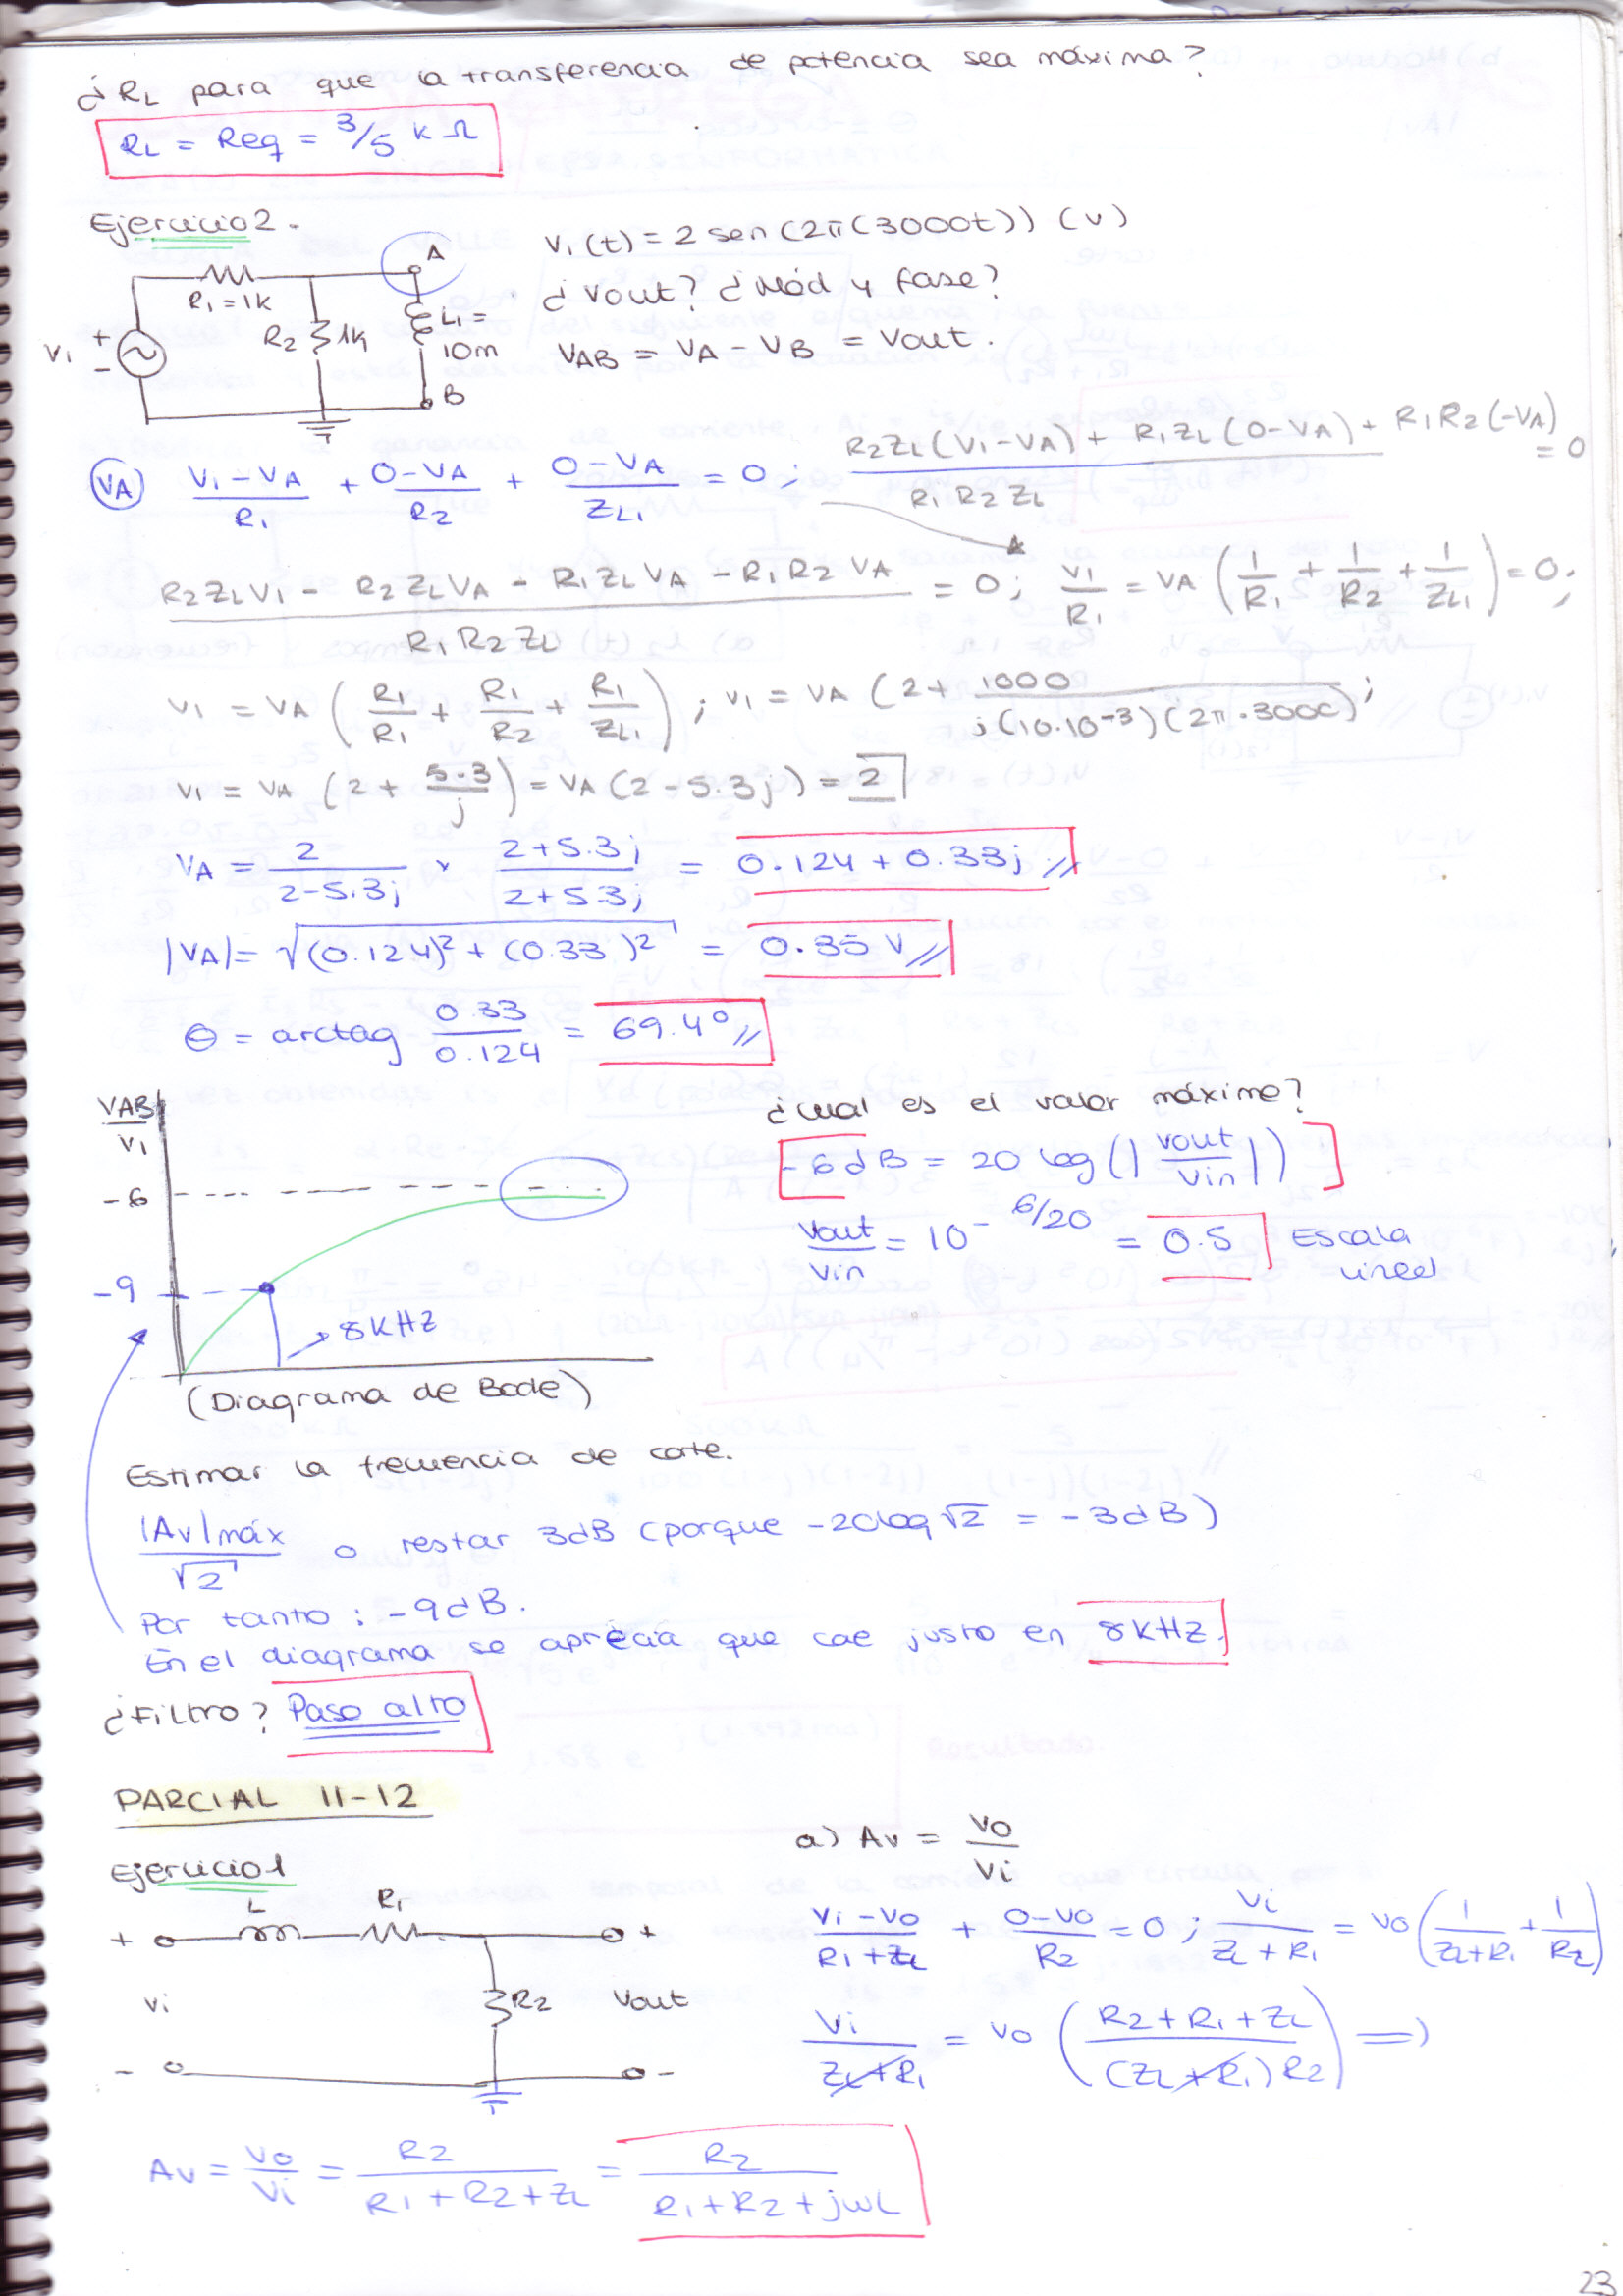 ¿RL para que la transferencia de potencia sea máxima?
RL = Req = 3/5 k Ω
Ejercicio 2.
V1(t) = 2 sen(2π(3000t)) (V)
¿Vout? ¿Mód y fase?
VAB = VA - VB = Vout.
A
R1 = 1K
R2
1K
L1 =
10m
V1
+
-
B
VA
(V1 - VA)/R1 + (0 - VA)/R2 + (0 - VA)/ZL1 = 0; (R2ZL(V1-VA) + R1ZL(0-VA) + R1R2(-VA))/(R1R2ZL) = 0
(R2ZLV1 - R2ZLVA - R1ZLVA - R1R2VA)/(R1R2ZL) = 0; V1/R1 = VA(1/R1 + 1/R2 + 1/ZL1) = 0;
V1 = VA(R1/R1 + R1/R2 + R1/ZL1); V1 = VA(2 + 1000/(j(10·10-3)(2π·3000)));
V1 = VA(2 + 5.3/j) = VA(2 - 5.3j) = 2
VA = 2/(2-5.3j) × (2+5.3j)/(2+5.3j) = 0.124 + 0.33j //
|VA| = √((0.124)² + (0.33)²) = 0.35 V //
θ = arctag 0.33/0.124 = 69.4° //
VAB/V1
-6
-9
8KHZ
(Diagrama de Bode)
¿Cual es el valor máximo?
-6dB = 20 log(|Vout/Vin|)
Vout/Vin = 10^-6/20 = 0.5 Escala lineal
Estimar la frecuencia de corte.
|Av|máx/√2 o restar 3dB (porque -20log√2 = -3dB)
Por tanto: -9dB.
En el diagrama se aprecia que cae justo en 8KHZ.
¿Filtro? Paso alto
PARCIAL 11-12
Ejercicio 1
a) Av = Vo/Vi
L
R1
+
+
Vi
R2
Vout
-
-
(Vi - Vo)/(R1+ZL) + (0-Vo)/R2 = 0; Vi/(ZL+R1) = Vo(1/(ZL+R1) + 1/R2)
Vi/(ZL+R1) = Vo((R2+R1+ZL)/((ZL+R1)R2)) =>
Av = Vo/Vi = R2/(R1+R2+ZL) = R2/(R1+R2+jωL)
23